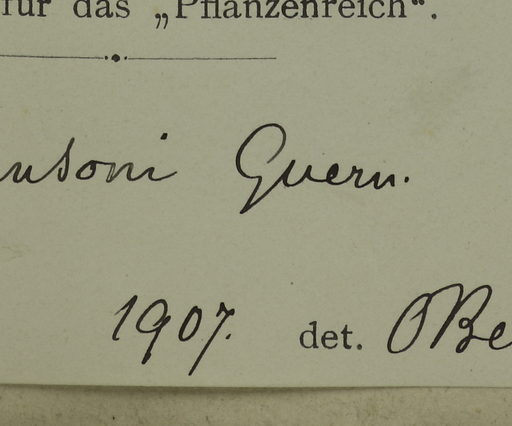 für das „Pflanzenreich“.
nsoni Guern.
1907. det. OBe